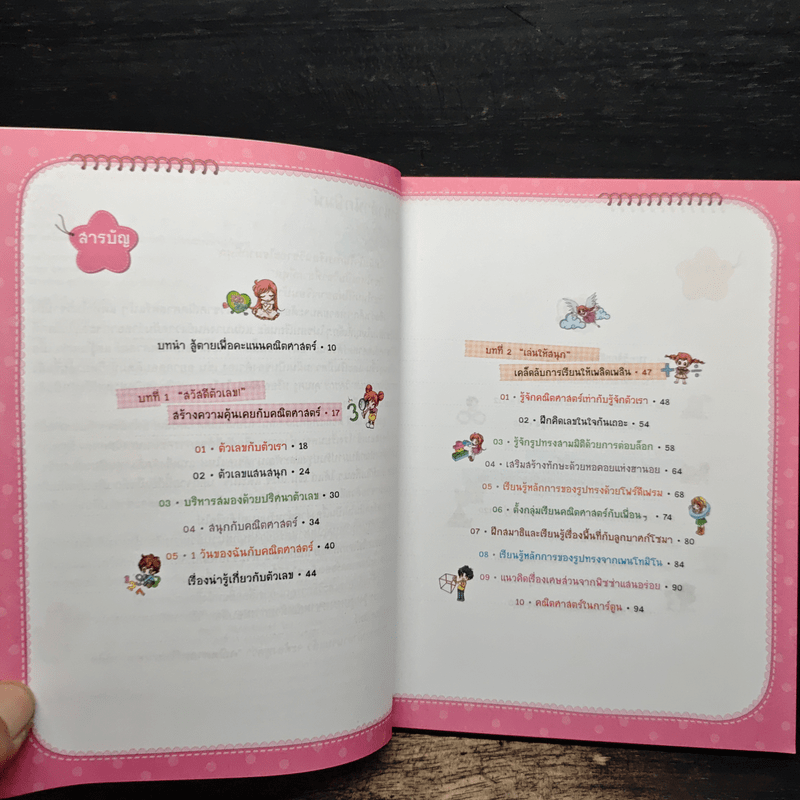 สารบัญ
บทนำ สู้ตายเพื่อคะแนนคณิตศาสตร์ • 10
บทที่ 1 "สวัสดีตัวเลข!"
สร้างความคุ้นเคยกับคณิตศาสตร์ • 17
01 • ตัวเลขกับตัวเรา • 18
02 • ตัวเลขแสนสนุก • 24
03 • บริหารสมองด้วยปริศนาตัวเลข • 30
04 • สนุกกับคณิตศาสตร์ • 34
05 • 1 วันของฉันกับคณิตศาสตร์ • 40
เรื่องน่ารู้เกี่ยวกับตัวเลข • 44
บทที่ 2 "เล่นให้สนุก"
เคล็ดลับการเรียนให้เพลิดเพลิน • 47
01 • รู้จักคณิตศาสตร์เท่ากับรู้จักตัวเรา • 48
02 • ฝึกคิดเลขในใจกันเถอะ • 54
03 • รู้จักรูปทรงสามมิติด้วยการต่อบล็อก • 58
04 • เสริมสร้างทักษะด้วยหอคอยแห่งฮานอย • 64
05 • เรียนรู้หลักการของรูปทรงด้วยโฟร์ดีเฟรม • 68
06 • ตั้งกลุ่มเรียนคณิตศาสตร์กับเพื่อนๆ • 74
07 • ฝึกสมาธิและเรียนรู้เรื่องพื้นที่กับลูกบาศก์โซมา • 80
08 • เรียนรู้หลักการของรูปทรงจากเพนโทมิโน • 84
09 • แนวคิดเรื่องเศษส่วนจากพิซซ่าแสนอร่อย • 90
10 • คณิตศาสตร์ในการ์ตูน • 94